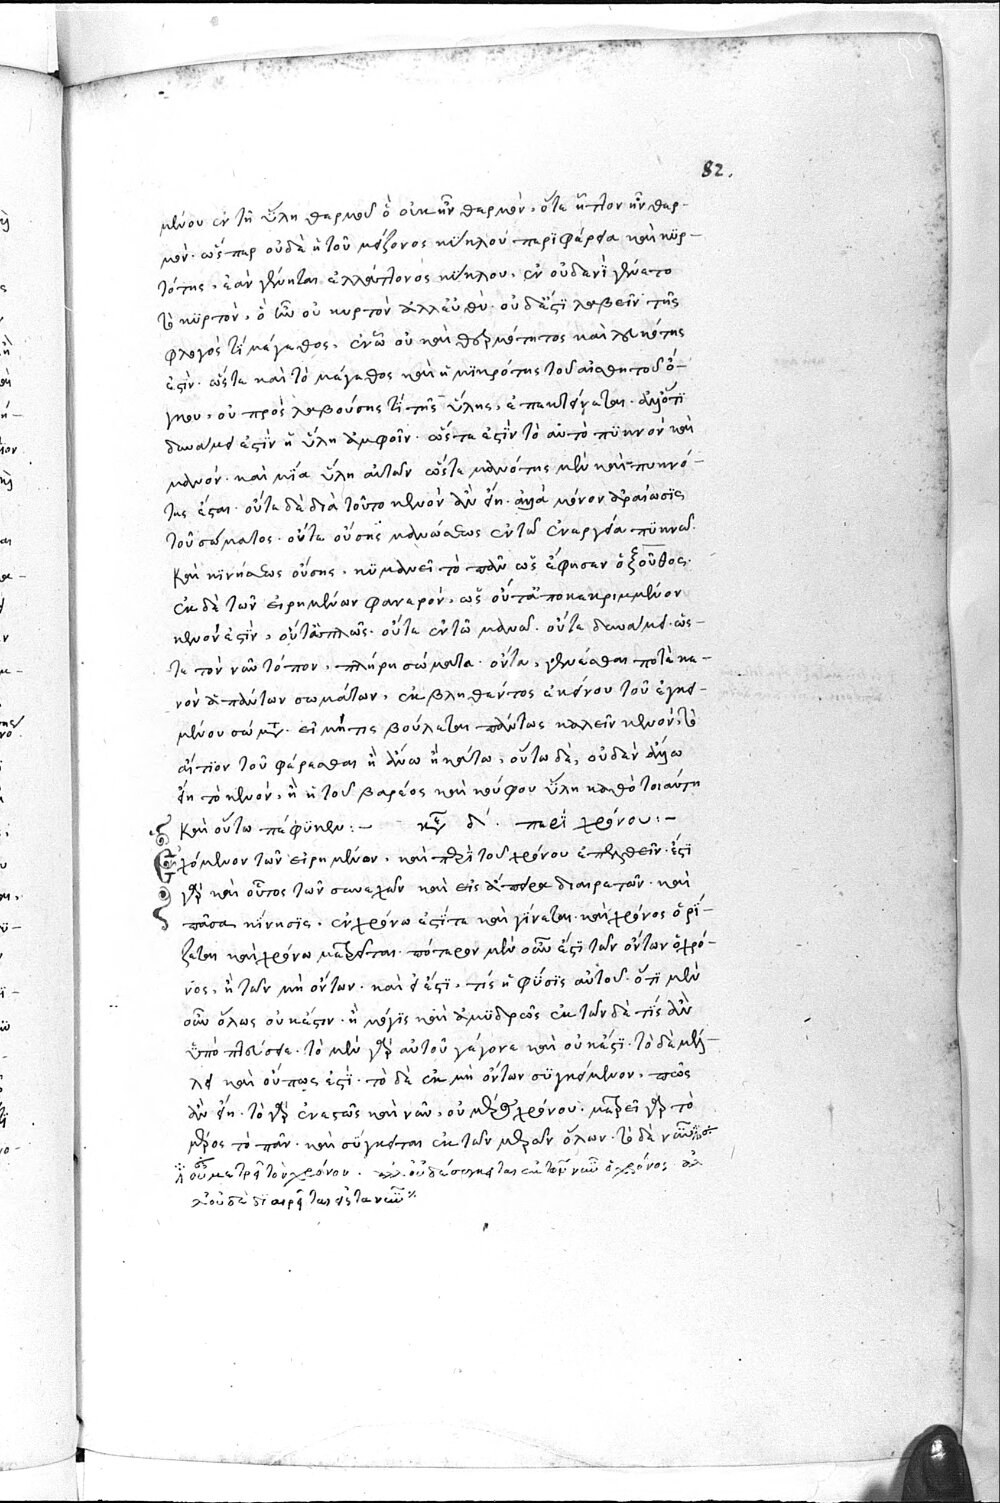 82.
μένου ἐν τῆ ὕλη θερμοῦ ὃ οὐκ ἦν θερμὸν, ὅτε ἧττον ἦν θερ-
μόν. ὥσπερ οὐδὲ ἡ τοῦ μείζονος κύκλου περιφέρεια καὶ κυρ-
τότης, ἐὰν γίνηται ἐλάττονος κύκλου, ἐν οὐδενὶ γέγονε τὸ
κυρτὸν, ὃ ἦν οὐ κυρτὸν ἀλλ' εὐθὺ. οὐδ' ἔστι λαβεῖν τῆς
φλογός τι μέγεθος, ἐν ᾧ οὐ καὶ θερμότητος καὶ λευκότης
ἐστίν. ὥστε καὶ τὸ μέγεθος καὶ ἡ μικρότης τοῦ αἰσθητοῦ ὄ-
γκου, οὐ προσλαβούσης τι τῆς ὕλης, ἐπεκτείνεται. ἀλλ' ὅτι
δυνάμει ἐστὶν ἡ ὕλη ἀμφοῖν. ὥστε ἐστὶν τὸ αὐτὸ πυκνὸν καὶ
μανόν. καὶ μία ὕλη αὐτῶν ὥστε μανότης μὲν καὶ πυκνό-
της ἔσται. οὔτε δὲ διὰ τοῦτο κενὸν ἂν εἴη. ἀλλὰ μόνον ἀραίωσις
τοῦ σώματος. οὔτε οὔσης μανώσεως ἐν τῶ ἐνεργεία πυκνῶ.
καὶ κινήσεως οὔσης, κυμανεῖ τὸ πᾶν ὡς ἔφησεν ὁ ξοῦθος.
ἐκ δὲ τῶν εἰρημένων φανερόν, ὡς οὔτε ἀποκεκριμμένον
κενόν ἐστιν, οὔτε ἁπλῶς. οὔτε ἐν τῶ μανῶ. οὔτε δυνάμει. ὥς-
τε τὸν νῦν τόπον, πλήρη σώματα. ὄντα, γενέσθαι ποτὲ κε-
νὸν ἁπάντων σωμάτων, ἐκβληθέντος ἐκείνου τοῦ ἐγκει-
μένου σώματος. εἰ μή τις βούλεται πάντως καλεῖν κενόν, τὸ
αἴτιον τοῦ φέρεσθαι ἢ ἄνω ἢ κάτω, οὕτω δὲ, οὐδὲν ἄλλο
εἴη τὸ κενόν, ἢ ἡ τοῦ βαρέος καὶ κούφου ὕλη καθὸ τοιαύτη
καὶ οὕτω πέφυκεν:— κεφ. δ΄. περὶ χρόνου:—
Ἐχόμενον τῶν εἰρημένων, καὶ περὶ τοῦ χρόνου ἐπελθεῖν. ἐστὶ
γὰρ καὶ οὗτος τῶν συνεχῶν καὶ εἰς ἄπειρα διαιρετῶν. καὶ
πᾶσα κίνησις, ἐν χρόνω ἐστί τε καὶ γίνεται. καὶ χρόνος ὁρί-
ζεται καὶ χρόνω μετρεῖται. πότερον μὲν οὖν ἐστὶ τῶν ὄντων ὁ χρό-
νος, ἢ τῶν μὴ ὄντων. καὶ εἰ ἐστὶ, τίς ἡ φύσις αὐτοῦ. ὅτι μὲν
οὖν ὅλως οὐκ ἔστιν. ἢ μόλις καὶ ἀμυδρῶς ἐκ τῶν δέ τις ἂν
ὑποπτεύσειε. τὸ μὲν γὰρ αὐτοῦ γέγονε καὶ οὐκ ἔστι. τὸ δὲ μέλ-
λει καὶ οὔπω ἐστὶ. τὸ δὲ ἐκ μὴ ὄντων συγκείμενον, πῶς
ἂν εἴη. τὸ γὰρ ἐνεστὼς καὶ νῦν, οὐ μέρος χρόνου. μετρεῖ γὰρ τὸ
μέρος τὸ πᾶν. καὶ σύγκειται ἐκ τῶν μερῶν ὅλων. τὸ δὲ νῦν
οὐ μετρεῖ τὸν χρόνον. ἀλλ' οὐδὲ σύγκειται ἐκ τῶν νῦν ὁ χρόνος ἀλ
λ' οὐδὲ διαιρεῖται εἰς τὰ νῦν